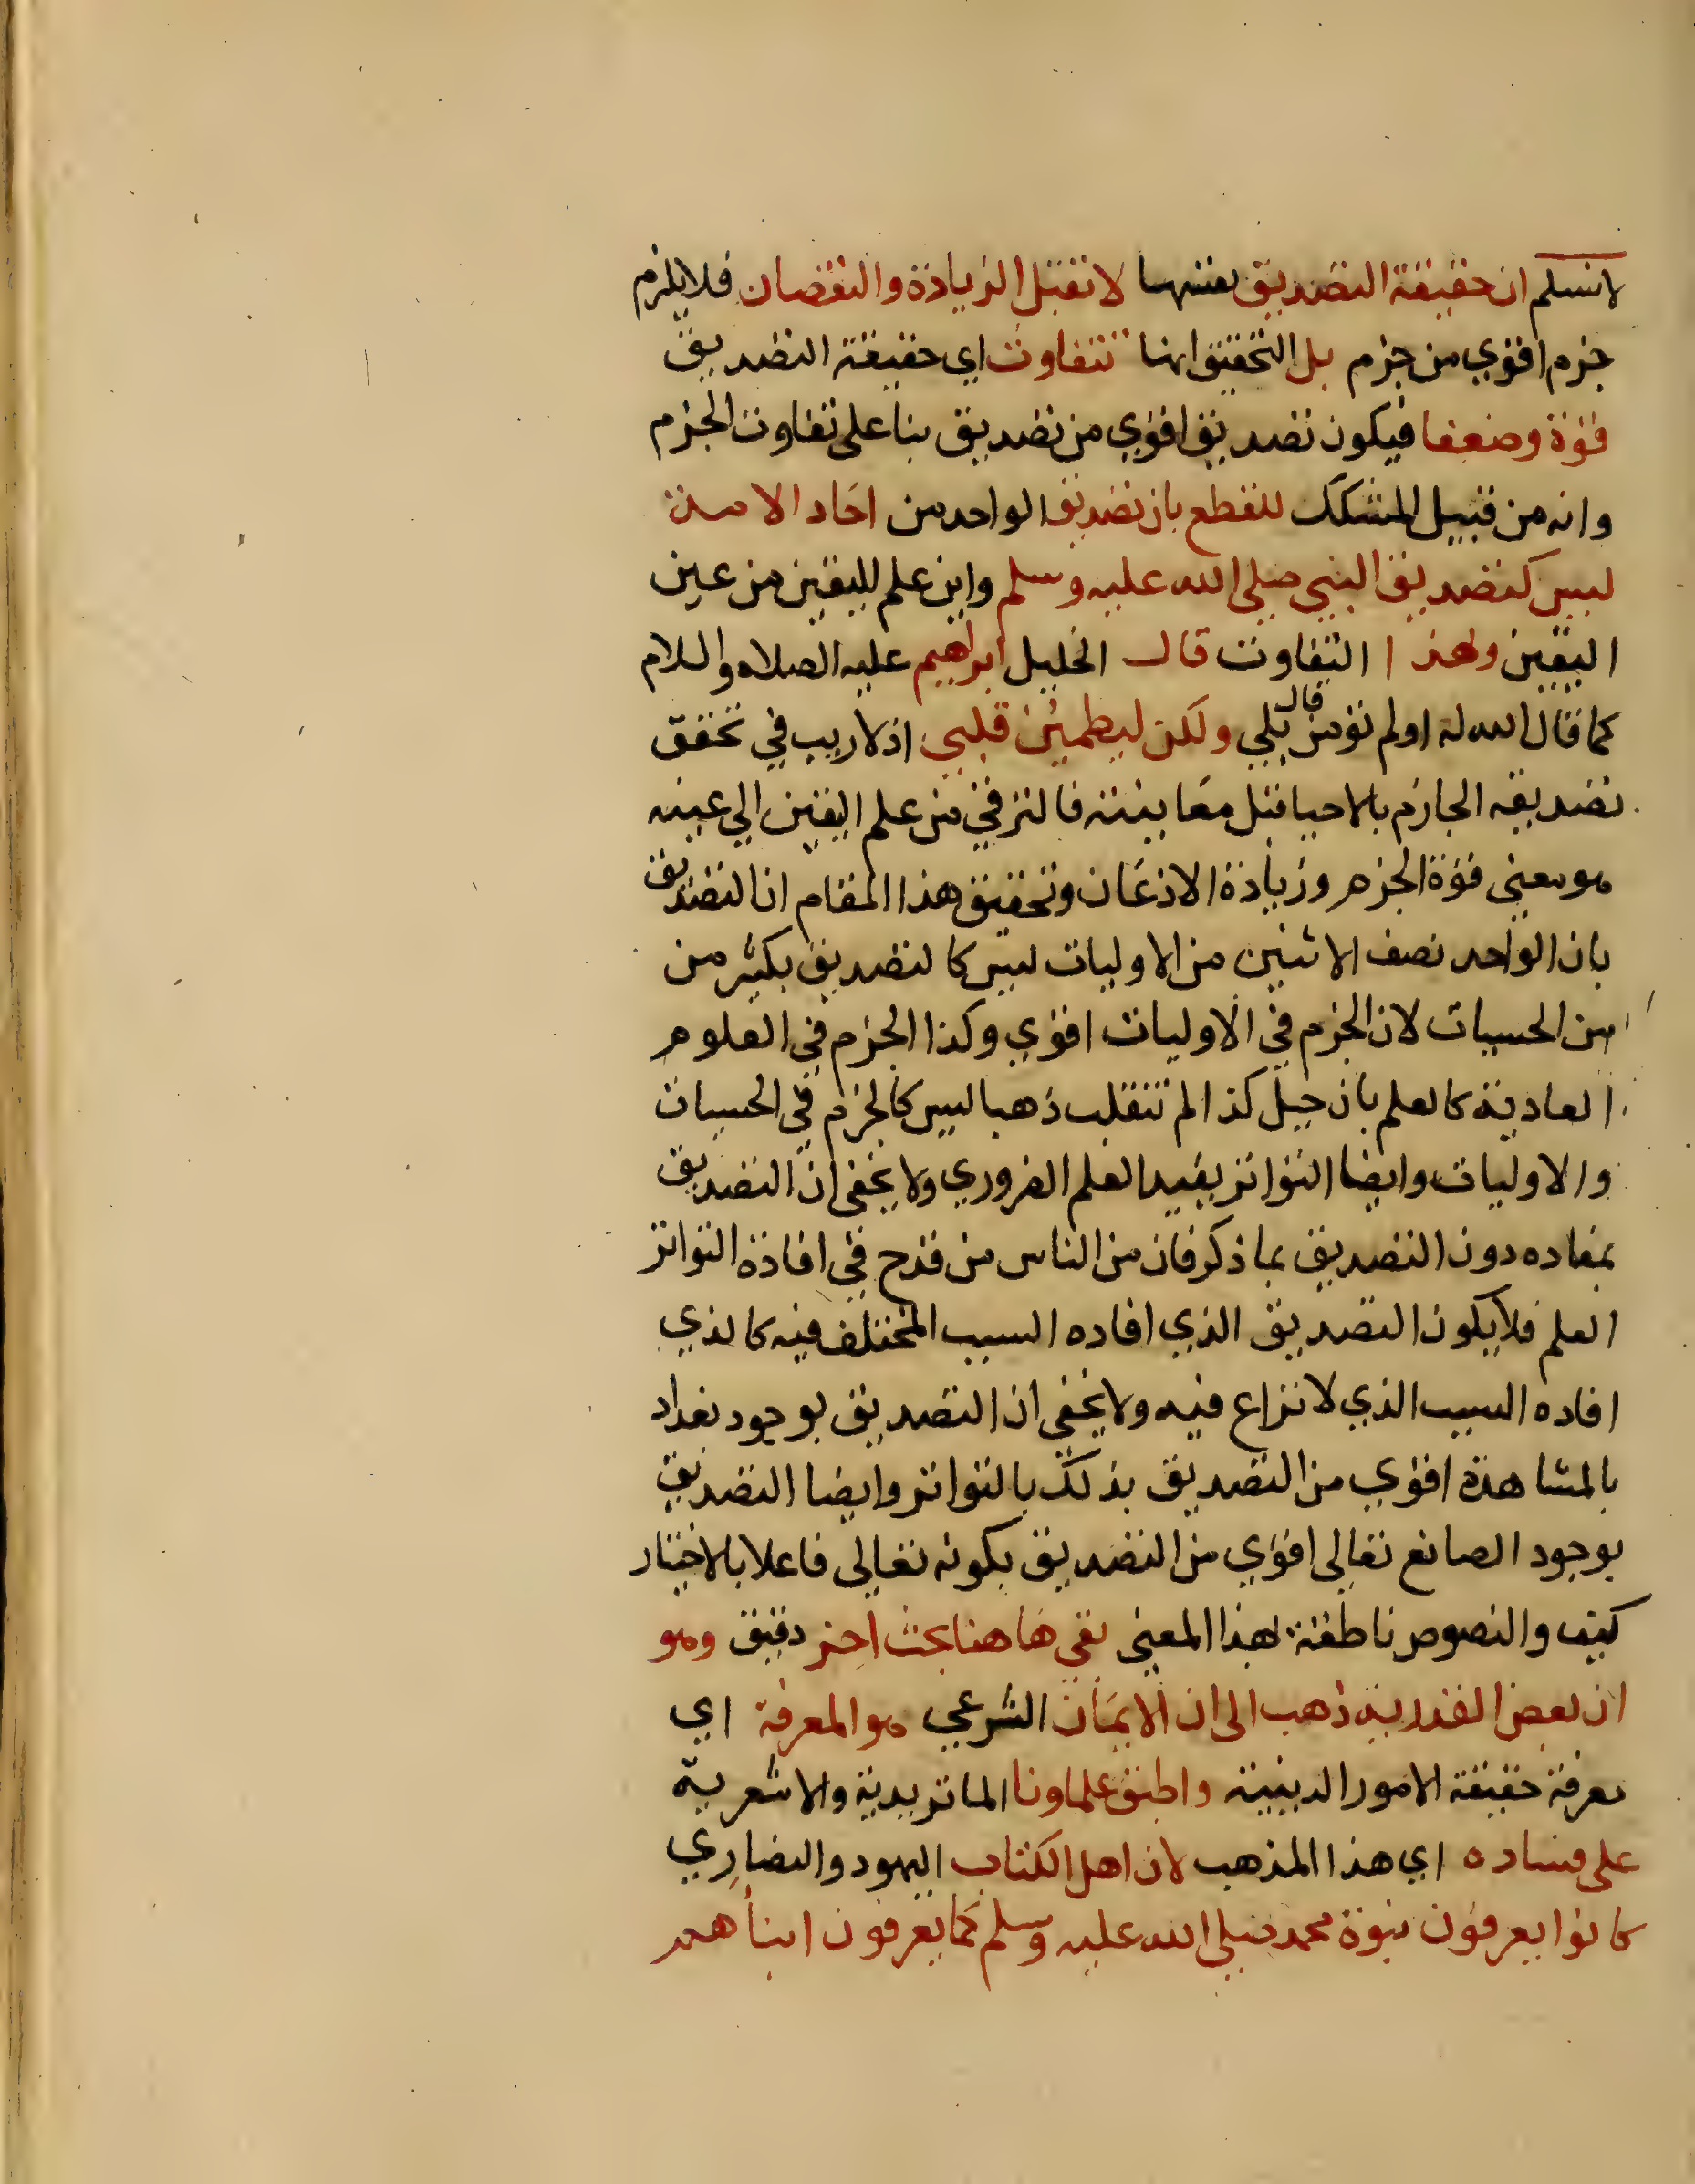 لا نسلم ان حقيقة التصديق بعينها لا تقبل الزيادة والنقصان فلا يلزم
جزم اقوي من جزم بل التحقيق انها تتفاوت اي حقيقة التصديق
قوة وضعفا فيكون تصديق اقوي من تصديق بنا على تفاوت الجزم
وانه من قبيل المشكك للقطع بان تصديق الواحد من احاد الامة
ليس كتصديق النبي صلي الله عليه وسلم واين علم لليقين من عين
اليقين ولهذا التفاوت قال الخليل ابراهيم عليه الصلاه والسلام
كما قال الله له اولم تؤمن قال بلي ولكن ليطمئن قلبي اذ لا ريب في تحقق
تصديقه الجازم بالاحيا قبل معاينته فالترقي من علم اليقين الي عينه
هو معني قوة الجزم وزيادة الاذعان وتحقيق هذا المقام ان التصديق
بان الواحد نصف الاثنين من الاوليات ليس كالتصديق بكثير من
من الحسيات لان الجزم في الاوليات اقوي وكذا الجزم في العلوم
العادية كالعلم بان جبل كذا لم تنقلب ذهبا ليس كالجزم في الحسيات
والاوليات وايضا التواتر يفيد العلم الضروري ولا يخفى ان التصديق
بمفاده دون التصديق بما ذكر فان من الناس من قدح في افادة التواتر
العلم فلا يكون التصديق الذي افاده السبب المختلف فيه كالذي
افاده السبب الذي لا نزاع فيه ولا يخفى ان التصديق بوجود بغداد
بالمشاهدة اقوي من التصديق بذلك بالتواتر وايضا التصديق
بوجود الصانع تعالى اقوي من التصديق بكونه تعالى فاعلا بالاختيار
كيف والنصوص ناطقة بهذا المعنى بقي هاهنا بحث اخر دقيق وهو
ان بعض القدرية ذهب الى ان الايمان الشرعي هو المعرفة اي
معرفة حقيقة الامور الدينية واطبق علماونا الماتريدية والاشعرية
على فساده اي هذا المذهب لان اهل الكتاب اليهود والنصاري
كانوا يعرفون نبوة محمد صلى الله عليه وسلم كما يعرفون ابنأهم